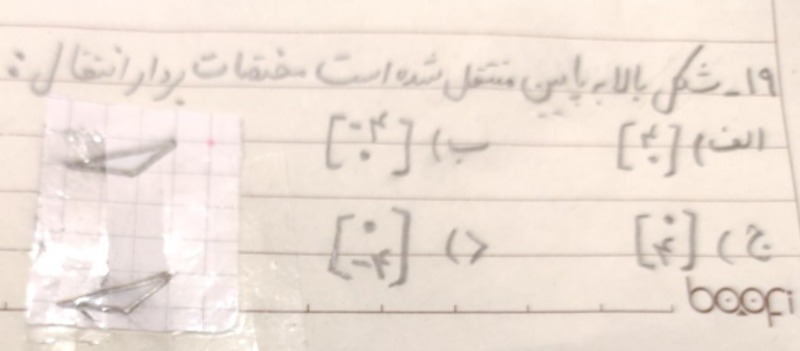 ۱۹_ شکل بالا به پایین منتقل شده است مختصات بردار انتقال :
الف) [۴ ۰] ب) [-۴ ۰]
ج) [۰ ۴] د) [۰ -۴]
boofi